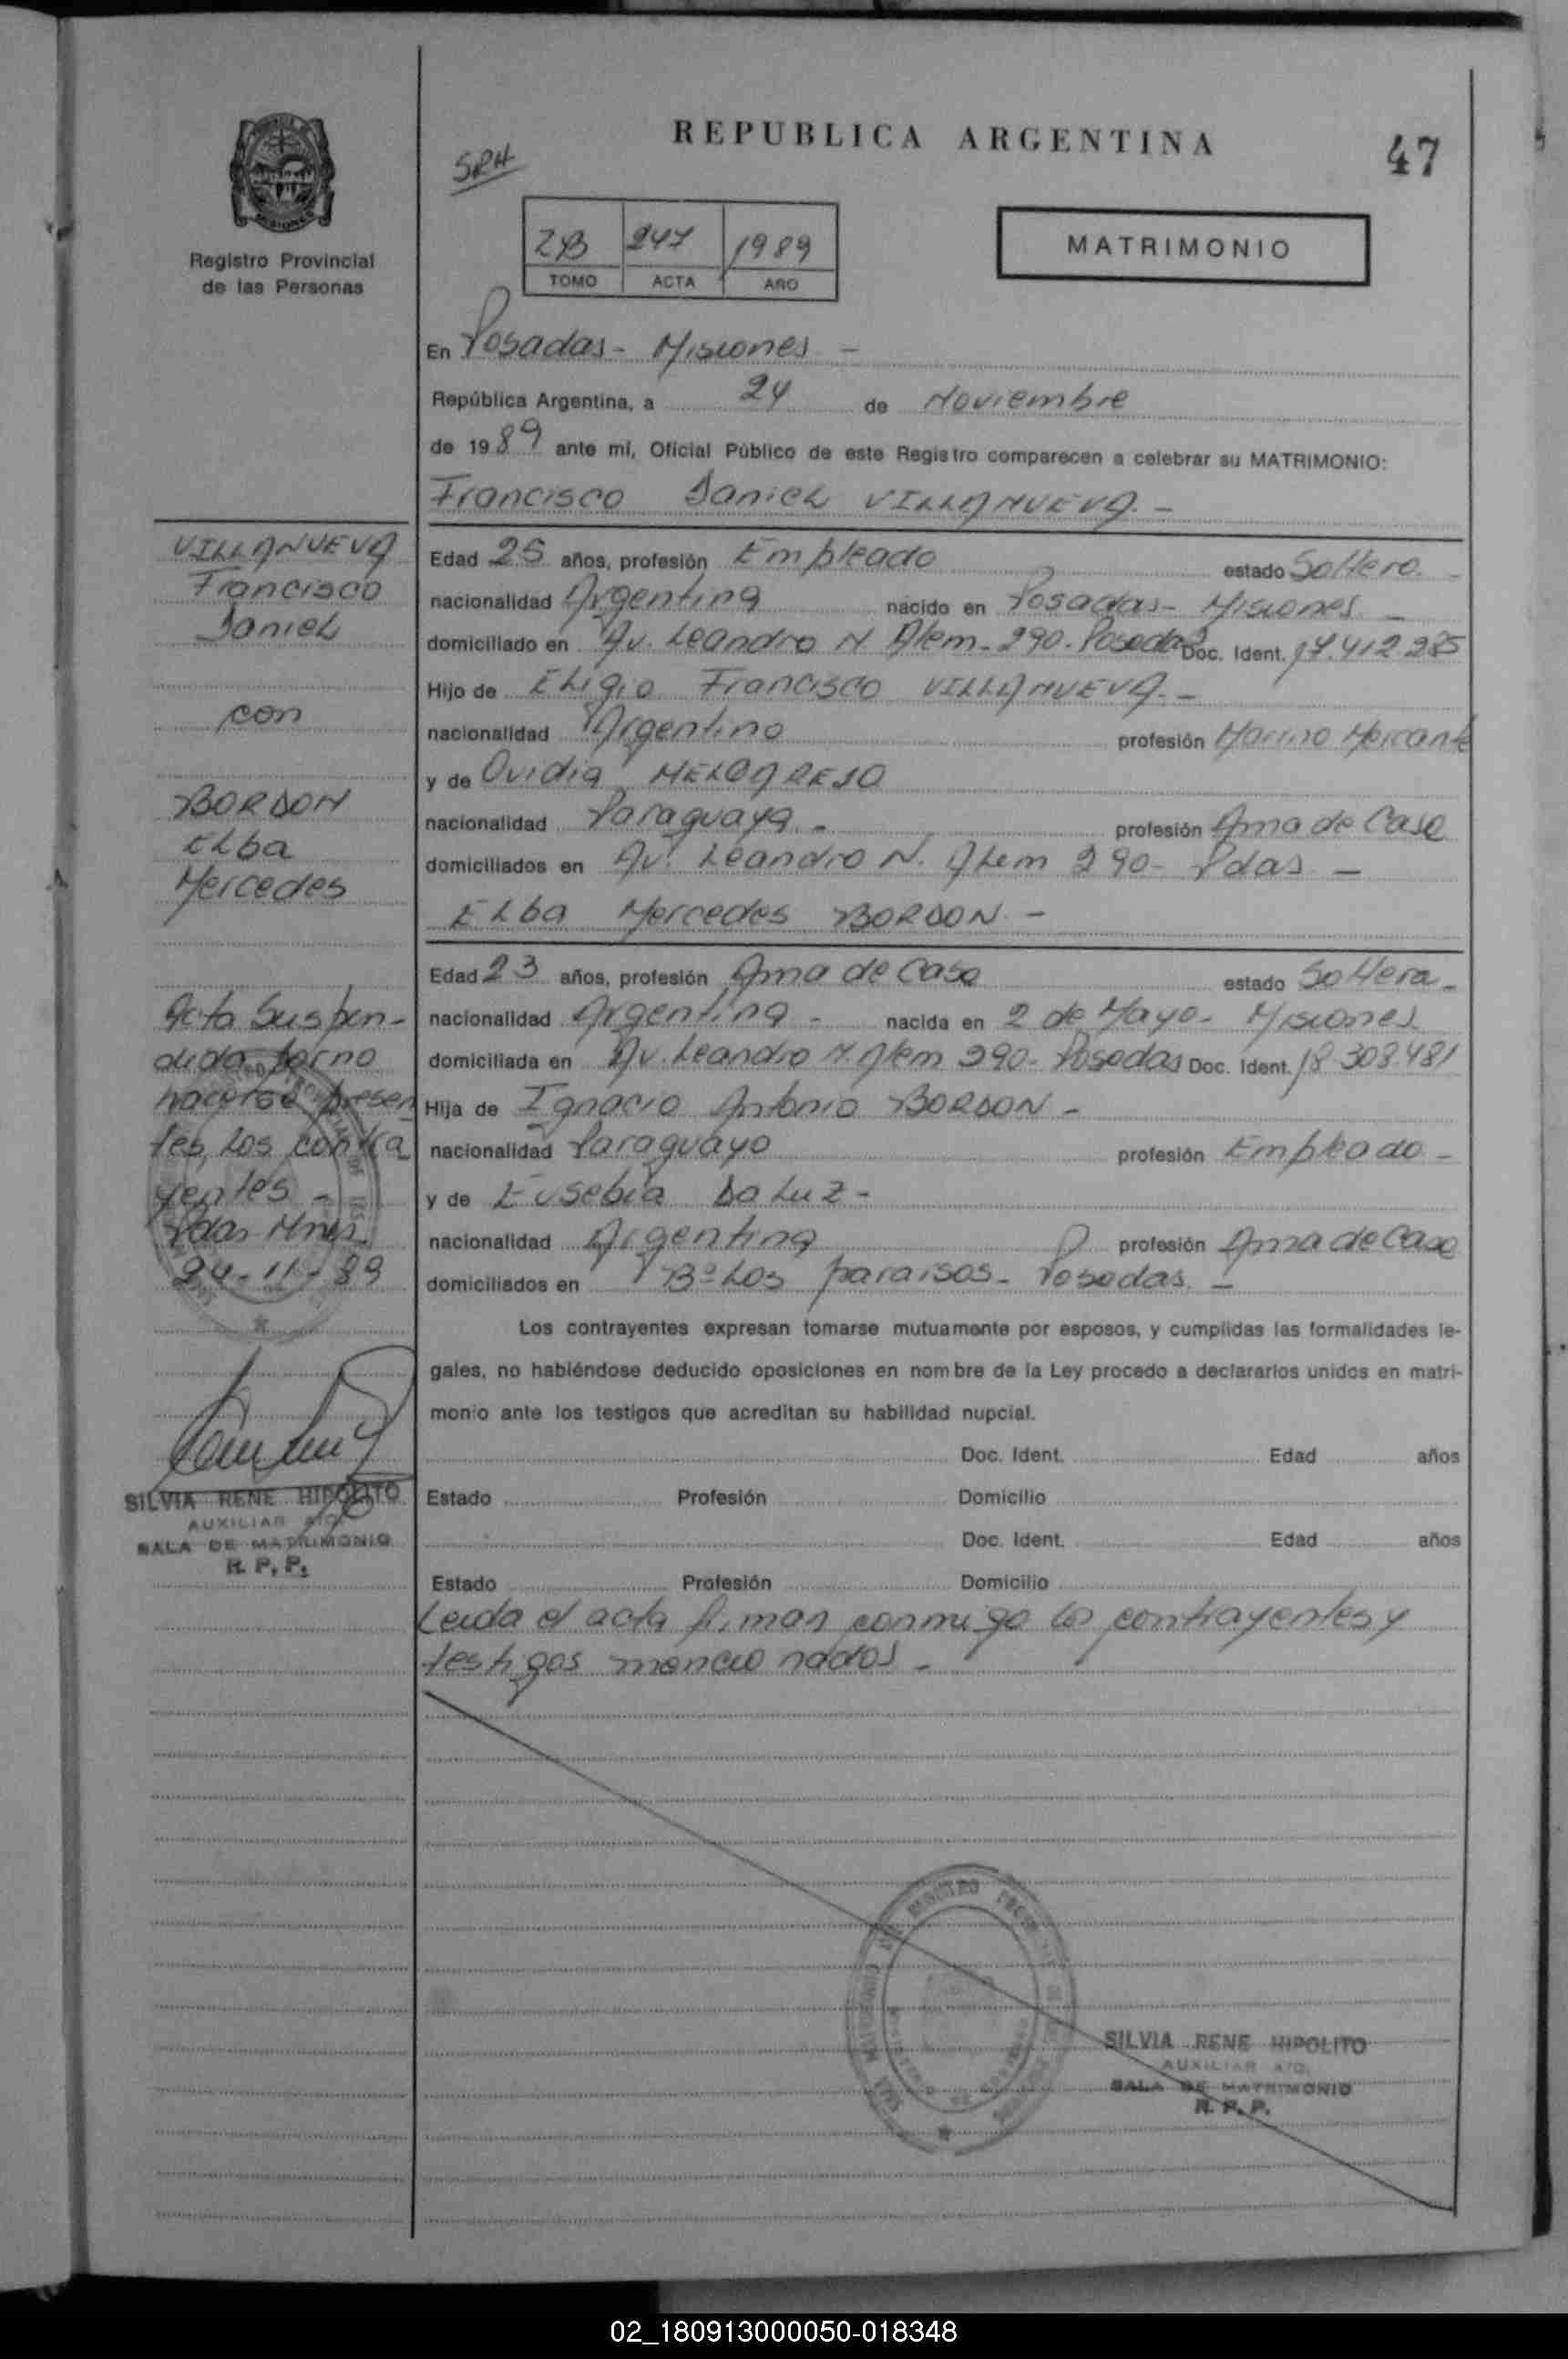 REPUBLICA ARGENTINA
47
SRH
2B 247 1989
TOMO ACTA AÑO
MATRIMONIO
Registro Provincial
de las Personas
En Posadas - Misiones -
República Argentina, a 24 de Noviembre
de 1989 ante mi, Oficial Público de este Registro comparecen a celebrar su MATRIMONIO:
Francisco Daniel VILLANUEVA. -
Edad 25 años, profesión Empleado estado Soltero. -
nacionalidad Argentina nacido en Posadas - Misiones -
domiciliado en Av. Leandro N Alem - 290 - Posadas Doc. Ident. 17.412.285
Hijo de Eligio Francisco VILLANUEVA. -
nacionalidad Argentino profesión Marino Mercante
y de Ovidia MELGAREJO
nacionalidad Paraguaya - profesión Ama de Casa
domiciliados en Av. Leandro N. Alem 290 - Pdas -
Elba Mercedes BORDON -
Edad 23 años, profesión Ama de Casa estado Soltera -
nacionalidad Argentina - nacida en 2 de Mayo - Misiones
domiciliada en Av. Leandro N. Alem 290 - Posadas Doc. Ident. 18.308.481
Hija de Ignacio Antonio BORDON -
nacionalidad Paraguayo profesión Empleado -
y de Eusebia Da Luz -
nacionalidad Argentina profesión Ama de Casa
domiciliados en Bº Los paraisos - Posadas. -
Los contrayentes expresan tomarse mutuamente por esposos, y cumplidas las formalidades le-
gales, no habiéndose deducido oposiciones en nombre de la Ley procedo a declararlos unidos en matri-
monio ante los testigos que acreditan su habilidad nupcial.
Doc. Ident. Edad años
Estado Profesión Domicilio
Doc. Ident. Edad años
Estado Profesión Domicilio
Leida el acta firman conmigo los contrayentes y
testigos mencionados -
VILLANUEVA
Francisco
Daniel
con
BORDON
Elba
Mercedes
Acta Suspen-
dida por no
hacerse presen
tes, los contra
yentes -
Pdas Mnes.
24-11-89
SILVIA RENE HIPOLITO
AUXILIAR A/C
SALA DE MATRIMONIO
R. P. P.
SILVIA RENE HIPOLITO
AUXILIAR A/C.
SALA DE MATRIMONIO
R. P. P.
02_180913000050-018348